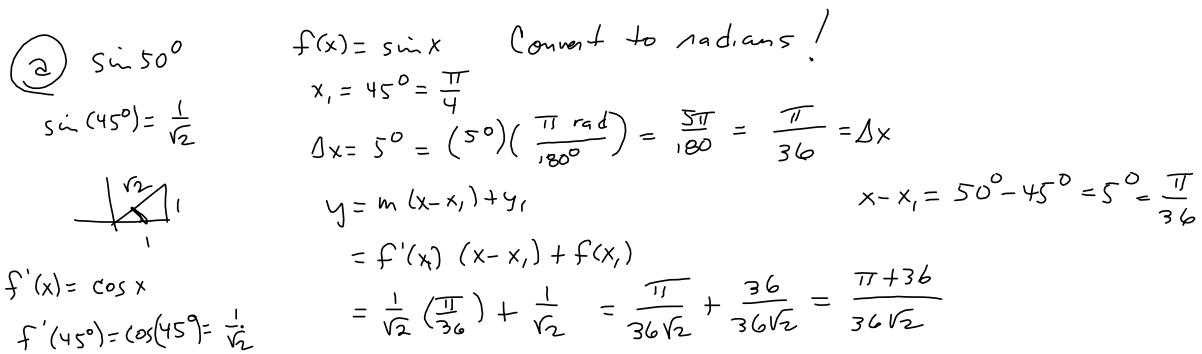 (a) sin 50°
sin (45°) = 1/√2
√2
1
1
f'(x) = cos x
f'(45°) = cos(45°) = 1/√2
f(x) = sin x Convert to radians!
x₁ = 45° = π/4
Δx = 5° = (5°)(π rad/180°) = 5π/180 = π/36 = Δx
y = m (x-x₁) + y₁
x - x₁ = 50° - 45° = 5° = π/36
= f'(x₁) (x-x₁) + f(x₁)
= 1/√2 (π/36) + 1/√2 = π/36√2 + 36/36√2 = π+36/36√2